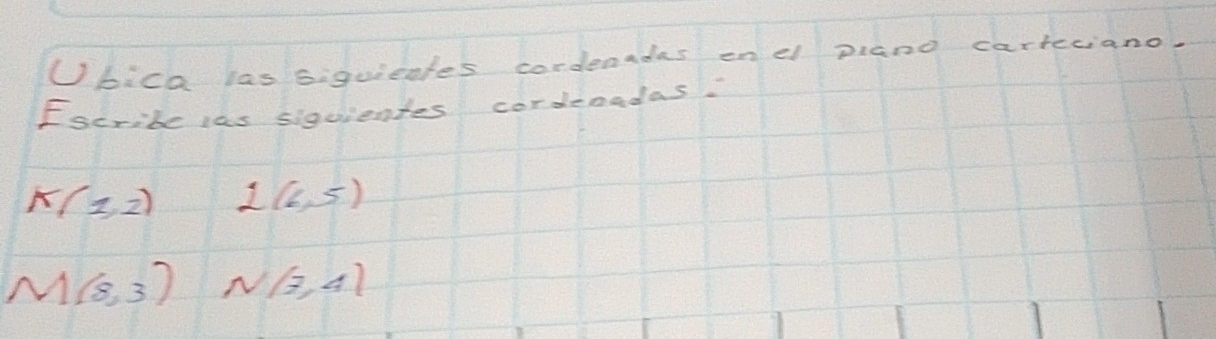 Ubica las siguientes cordenadas en el plano carteciano.
Escribe las siguientes cordenadas:
K(2,2) L(6,5)
M(8,3) N(7,4)